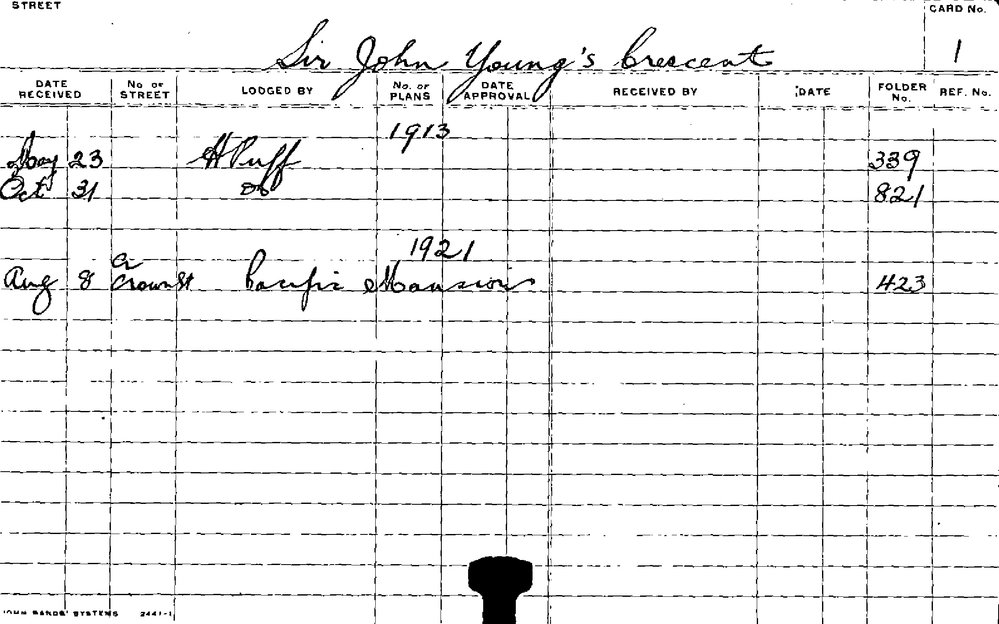 STREET
CARD No.
Sir John Young's Crescent 1
DATE RECEIVED No OF STREET LODGED BY No. OF PLANS DATE APPROVAL RECEIVED BY DATE FOLDER No. REF. No.
1913
May 23 H Ruff 339
Oct 31 do 821
1921
Cr
Aug 8 Crown St Pacific Mansions 423
JOHN SANDS' SYSTEMS 2441-1